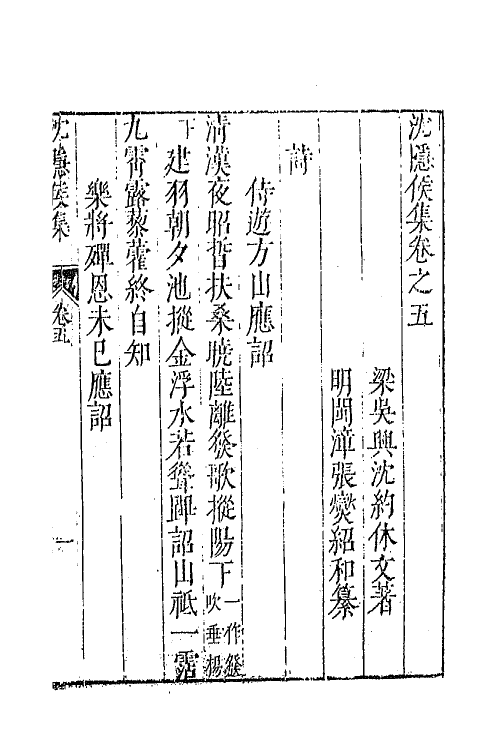 沈隱侯集卷之五
梁吳興沈約休文著
明閩漳張燮紹和纂
詩
侍遊方山應詔
清漢夜昭晢扶桑曉陸離發歌摐陽下一作發吹垂楊
下建羽朝夕池摐金浮水若聳蹕詔山祇一霑
九霄露藜藿終自知
樂將殫恩未已應詔
沈隱侯集
卷五
一